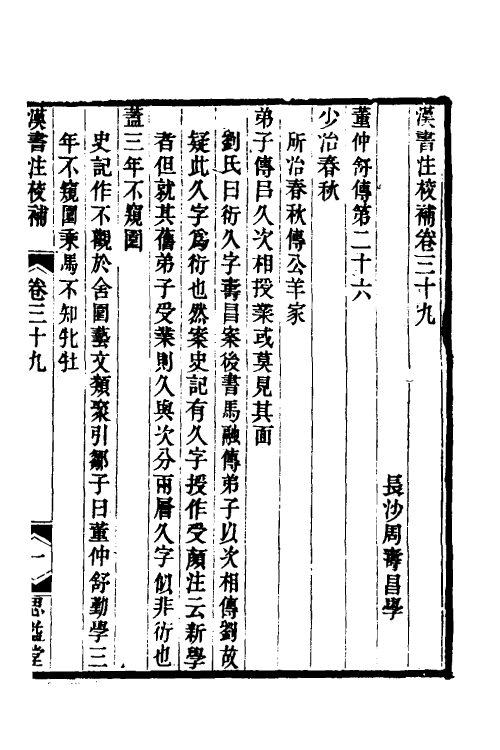 漢書注校補卷三十九
長沙周壽昌學
董仲舒傳第二十六
少治春秋
所治春秋傳公羊家
弟子傳㠯久次相授業或莫見其面
劉氏曰衍久字壽昌案後書馬融傳弟子以次相傳劉故
疑此久字爲衍也然案史記有久字授作受顏注云新學
者但就其舊弟子受業則久與次分兩層久字似非衍也
蓋三年不窺園
史記作不觀於舍園藝文類聚引鄒子曰董仲舒勤學三
年不窺園乘馬不知牝牡
漢書注校補
卷三十九
一
思益堂